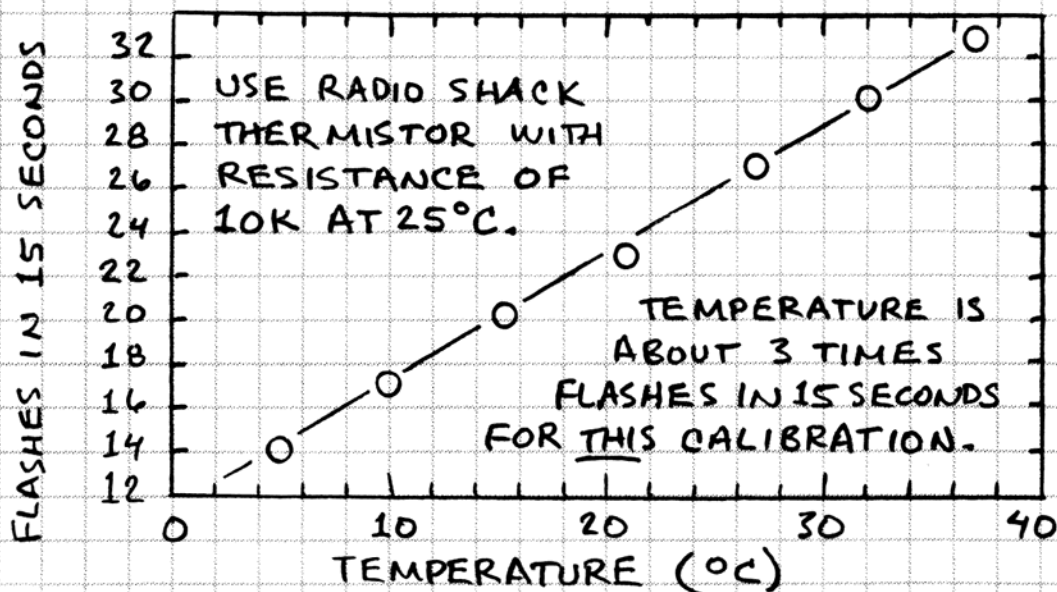 FLASHES IN 15 SECONDS
32
30
28
26
24
22
20
18
16
14
12
USE RADIO SHACK
THERMISTOR WITH
RESISTANCE OF
10K AT 25°C.
TEMPERATURE IS
ABOUT 3 TIMES
FLASHES IN 15 SECONDS
FOR THIS CALIBRATION.
0 10 20 30 40
TEMPERATURE (°C)